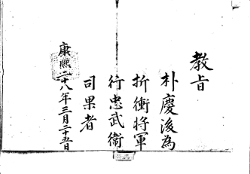 教旨
朴慶後爲
折衝將軍
行忠武衛
司果者
康熙二十八年三月二十五日